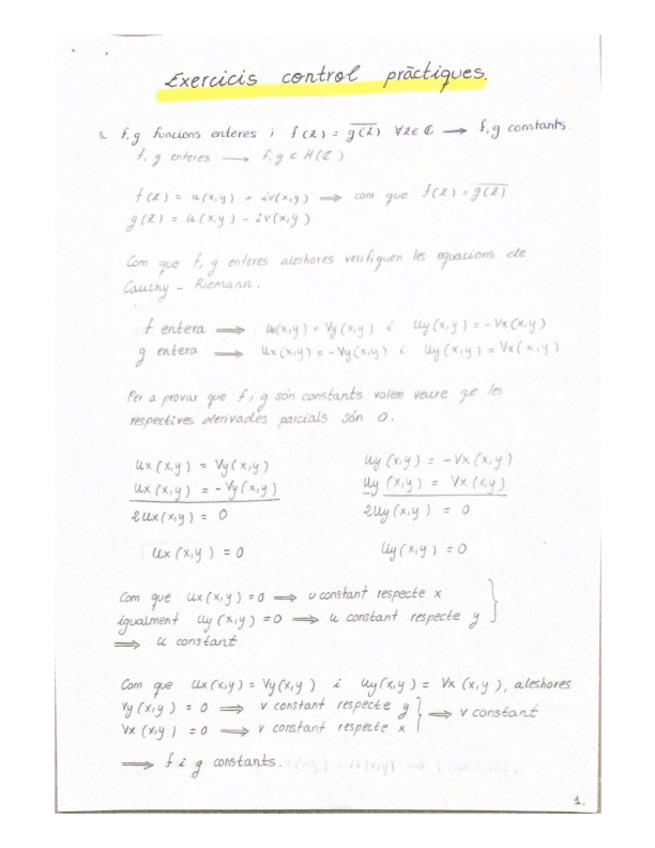 Exercicis control pràctiques.
1. f, g funcions enteres i f(z) = \overline{g(z)} ∀z∈ℂ → f, g constants.
f, g enteres → f, g ∈ H(ℂ)
f(z) = u(x,y) + iv(x,y) ⟹ com que f(z) = \overline{g(z)}
g(z) = u(x,y) - iv(x,y)
Com que f, g enteres aleshores verifiquen les equacions de
Cauchy - Riemann.
f entera ⟹ ux(x,y) = Vy(x,y) i Uy(x,y) = -Vx(x,y)
g entera ⟹ Ux(x,y) = -Vy(x,y) i Uy(x,y) = Vx(x,y)
Per a provar que f i g són constants volem veure qe les
respectives derivades parcials són 0.
Ux(x,y) = Vy(x,y) Uy(x,y) = -Vx(x,y)
Ux(x,y) = -Vy(x,y) Uy(x,y) = Vx(x,y)
2Ux(x,y) = 0 2Uy(x,y) = 0
Ux(x,y) = 0 Uy(x,y) = 0
Com que Ux(x,y) = 0 ⟹ u constant respecte x
igualment Uy(x,y) = 0 ⟹ u constant respecte y
⟹ u constant
Com que Ux(x,y) = Vy(x,y) i Uy(x,y) = Vx(x,y), aleshores
Vy(x,y) = 0 ⟹ v constant respecte y
Vx(x,y) = 0 ⟹ v constant respecte x ⟹ v constant
⟹ f i g constants.
1.